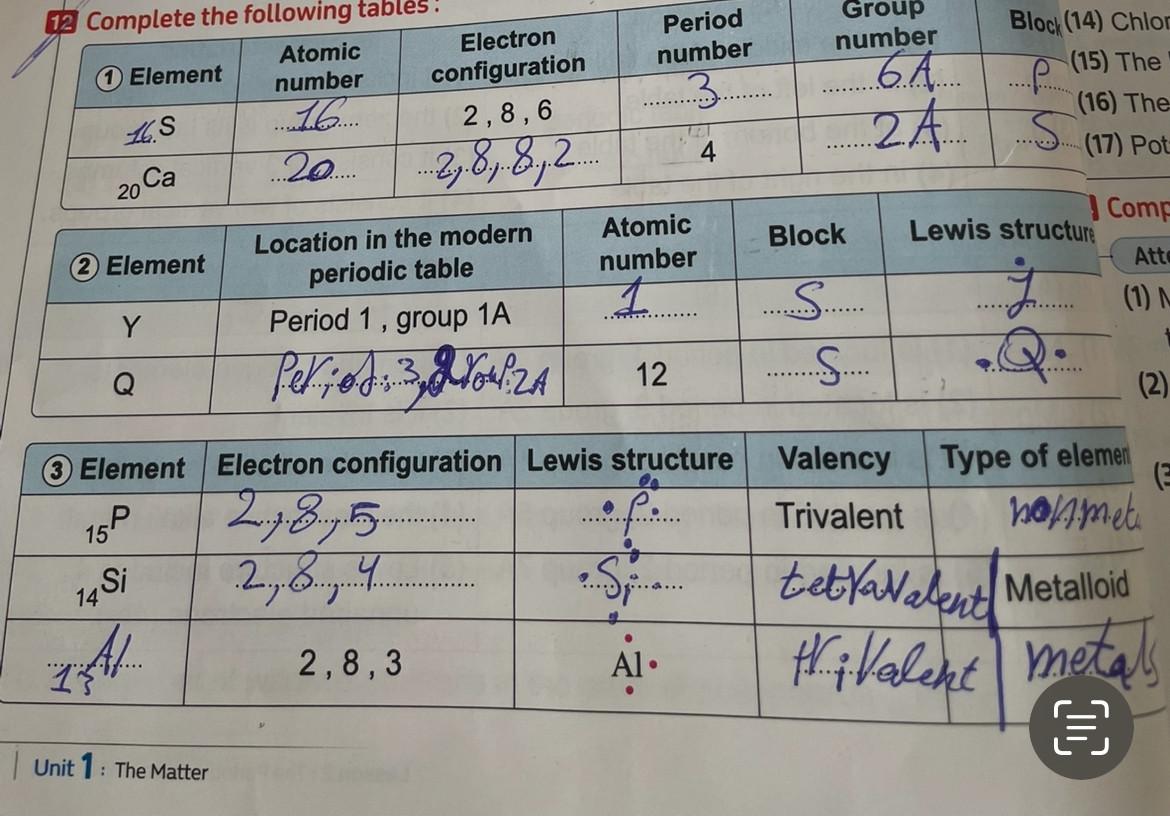 12 Complete the following tables :
① Element Atomic number Electron configuration Period number Group number Block
16S 16 2 , 8 , 6 3 6A P
20Ca 20 2,8,8,2 4 2A S
② Element Location in the modern periodic table Atomic number Block Lewis structure
Y Period 1 , group 1A 1 S y
Q Period: 3, group: 2A 12 S Q
③ Element Electron configuration Lewis structure Valency Type of elemen
15P 2,8,5 P Trivalent nonmet
14Si 2,8,4 Si tetravalent Metalloid
13Al 2 , 8 , 3 Al trivalent metals
Unit 1 : The Matter
(14) Chlor
(15) The
(16) The
(17) Pot
Comp
Att
(1)
(2)
(3